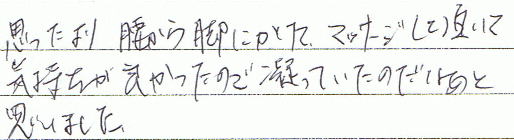 思ったより 腰から脚にかけて、マッサージして頂いて
気持ちが良かったので凝っていたのだなあと
思いました。